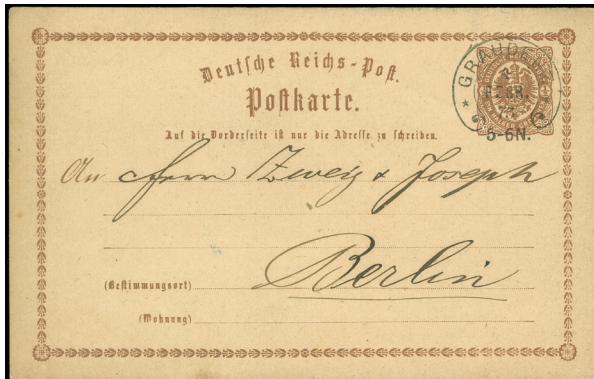 Deutsche Reichs-Post.
Postkarte.
Auf die Vorderseite ist nur die Adresse zu schreiben.
GRAUDENZ
FEBR.
5-6N.
An Herrn Zweig & Joseph
Berlin
(Bestimmungsort)
(Wohnung)